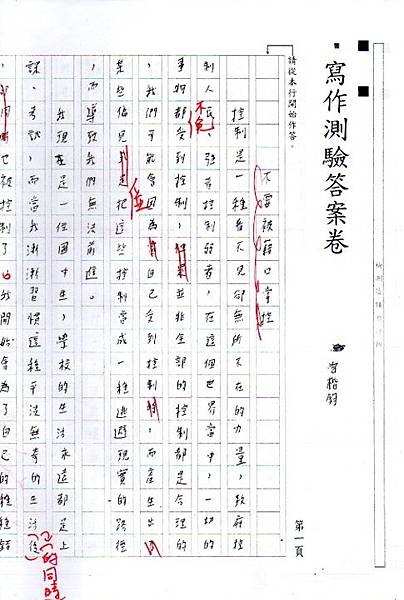 寫作測驗答案卷
請從本行開始作答。
第一頁
不要被藉口掌控
控制是一種看不見卻無所不在的力量,政府控
制人民,強者控制弱者,在這個世界當中,一切的
事物都受到控制,
並非全部的控制都是合理的
,我們可能會因為
自己受到控制
,而產生出
某些偏見
把這些控制當成一種逃避現實的路徑
,而導致我們無法前進。
我現在是一個國中生,學校的生活永遠都是上
課、考試,而當我漸漸習慣這種平淡無奇的生活後
已被控制了。我開始會為了自己的種種錯
的同時